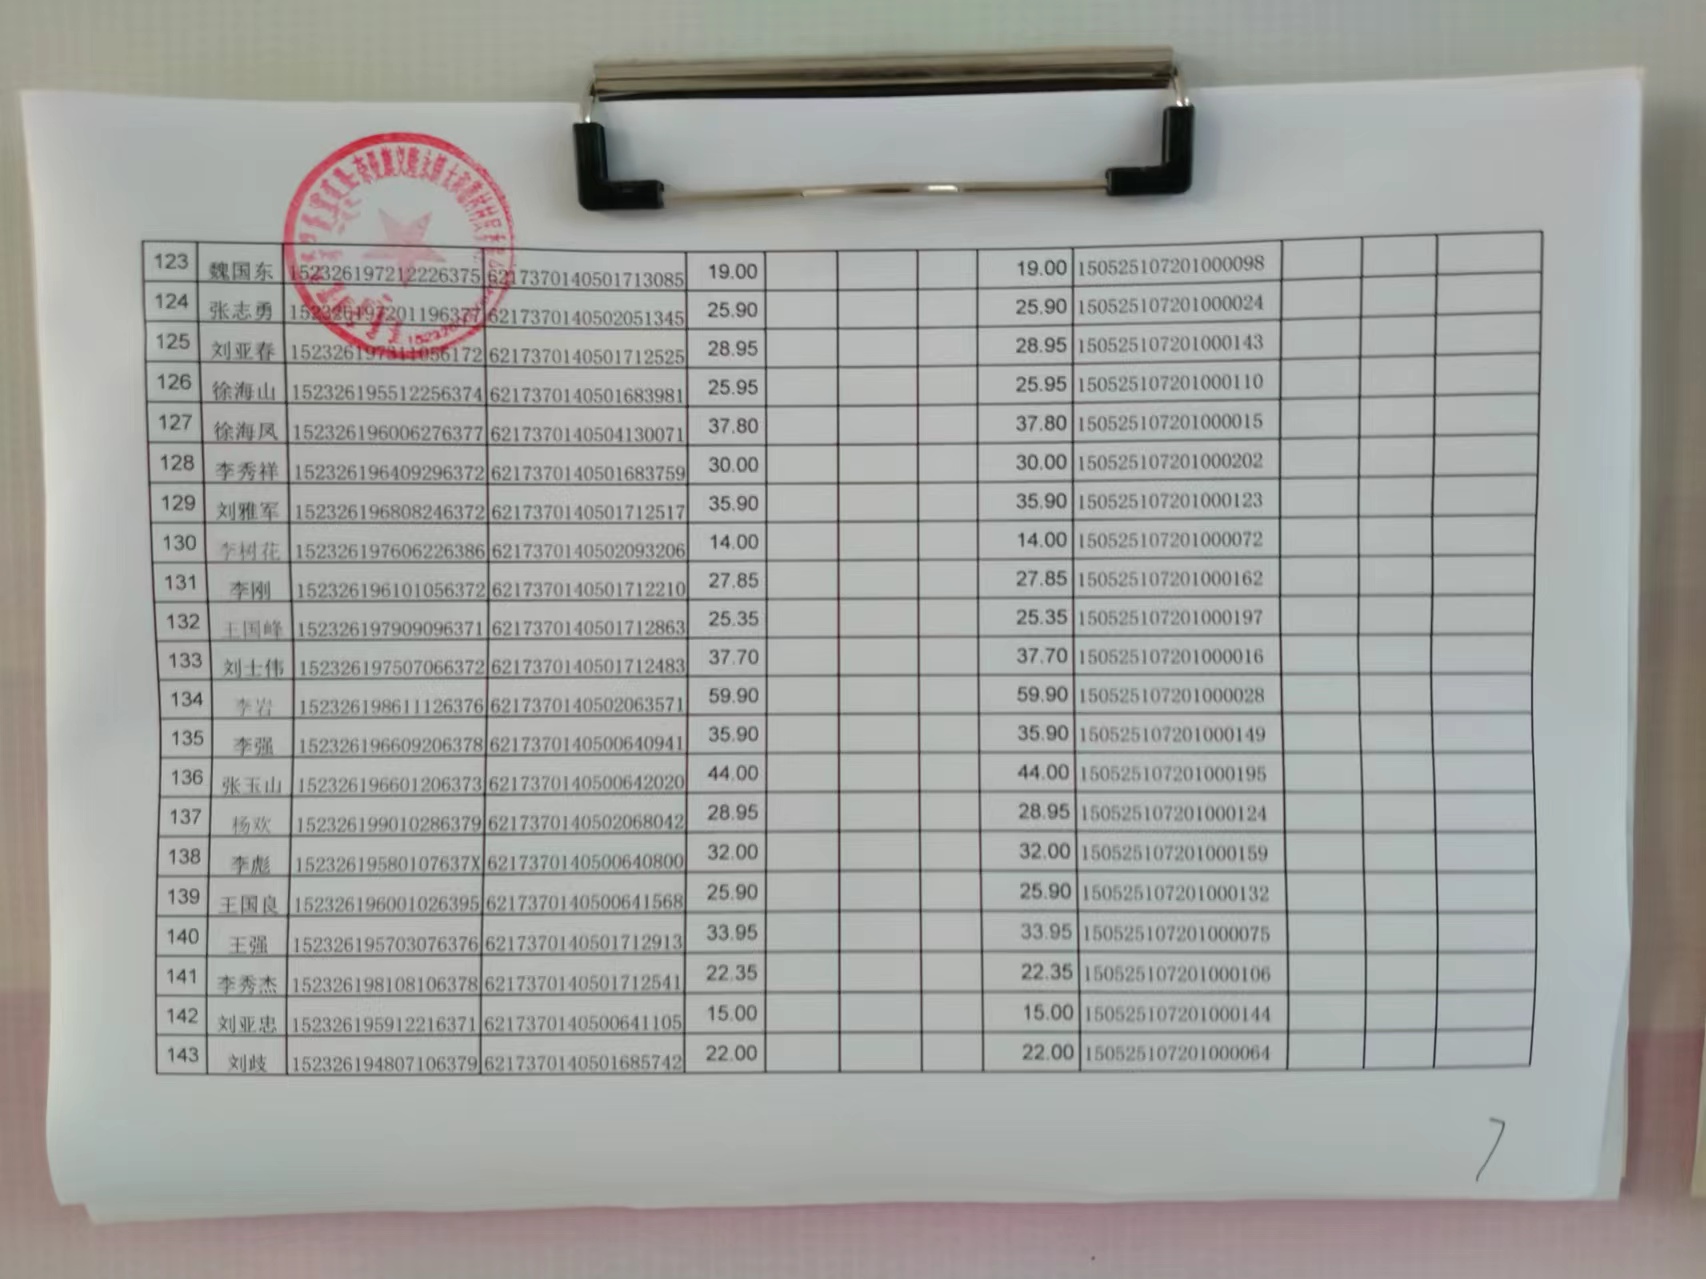 123 魏国东 152326197212226375 6217370140501713085 19.00 19.00 150525107201000098
124 张志勇 152326197201196377 6217370140502051345 25.90 25.90 150525107201000024
125 刘亚春 152326197311056172 6217370140501712525 28.95 28.95 150525107201000143
126 徐海山 152326195512256374 6217370140501683981 25.95 25.95 150525107201000110
127 徐海凤 152326196006276377 6217370140504130071 37.80 37.80 150525107201000015
128 李秀祥 152326196409296372 6217370140501683759 30.00 30.00 150525107201000202
129 刘雅军 152326196808246372 6217370140501712517 35.90 35.90 150525107201000123
130 李树花 152326197606226386 6217370140502093206 14.00 14.00 150525107201000072
131 李刚 152326196101056372 6217370140501712210 27.85 27.85 150525107201000162
132 王国峰 152326197909096371 6217370140501712863 25.35 25.35 150525107201000197
133 刘士伟 152326197507066372 6217370140501712483 37.70 37.70 150525107201000016
134 李岩 152326198611126376 6217370140502063571 59.90 59.90 150525107201000028
135 李强 152326196609206378 6217370140500640941 35.90 35.90 150525107201000149
136 张玉山 152326196601206373 6217370140500642020 44.00 44.00 150525107201000195
137 杨欢 152326199010286379 6217370140502068042 28.95 28.95 150525107201000124
138 李彪 15232619580107637X 6217370140500640800 32.00 32.00 150525107201000159
139 王国良 152326196001026395 6217370140500641568 25.90 25.90 150525107201000132
140 王强 152326195703076376 6217370140501712913 33.95 33.95 150525107201000075
141 李秀杰 152326198108106378 6217370140501712541 22.35 22.35 150525107201000106
142 刘亚忠 152326195912216371 6217370140500641105 15.00 15.00 150525107201000144
143 刘歧 152326194807106379 6217370140501685742 22.00 22.00 150525107201000064
7